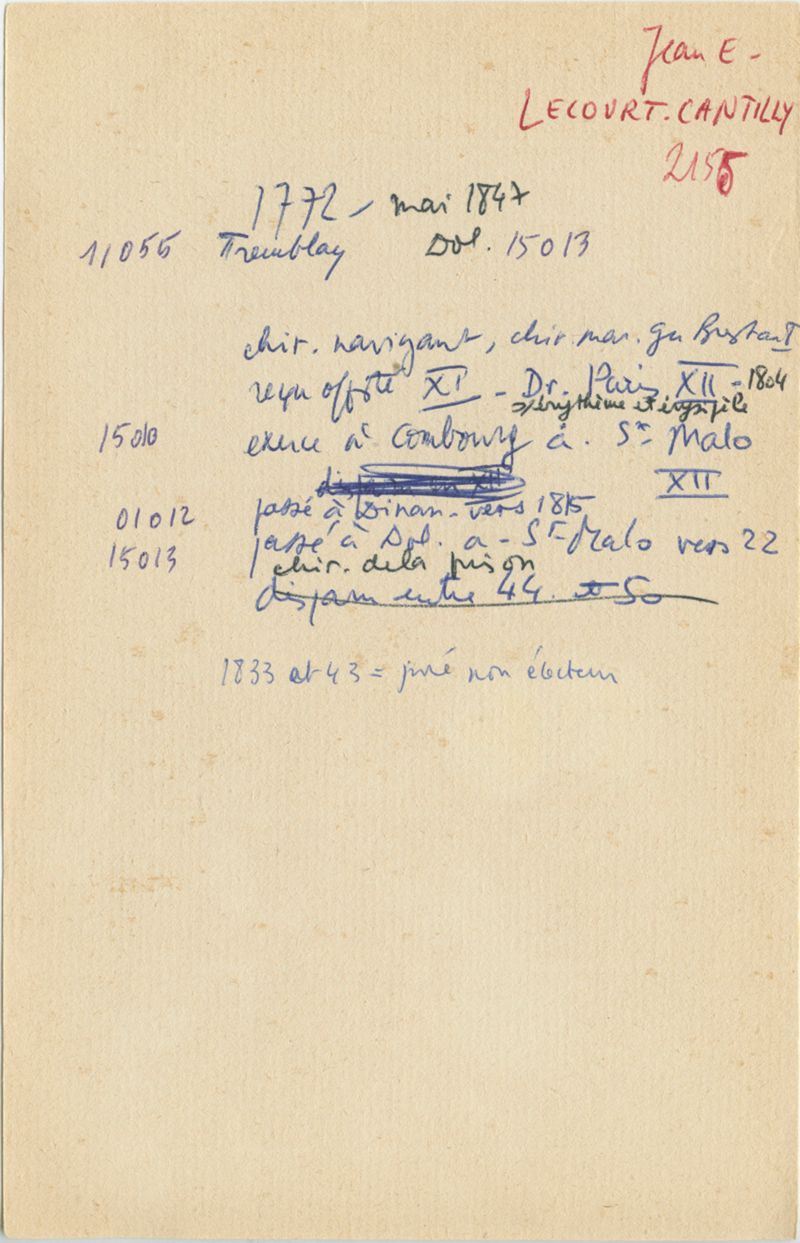 Jean E -
LECOURT-CANTILLY
2155
1772 - mai 1847
11055 Tremblay Dol. 15013
chir. navigant, chir. mar. Brest
reçu off. XI - Dr. Paris XII - 1804
s/érythème et érysipèle
15010 exerce à Combourg à . St Malo
XII
01012 passé à Dinan - vers 1815
15013 passé à Dol. a - St Malo vers 22
chir. de la prison
disparu entre 44. et 50
1833 et 43 = juré non électeur